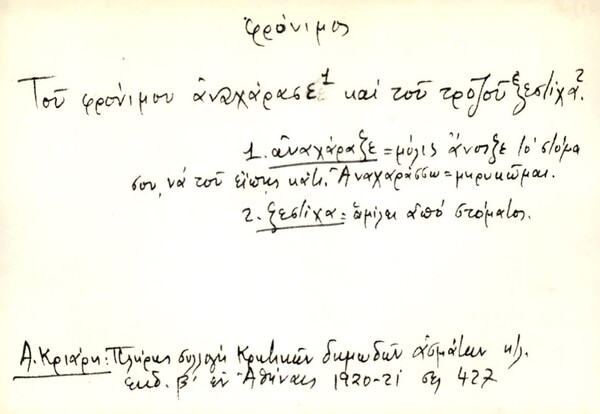 φρόνιμος
Τοῦ φρόνιμου ἀναχάρασε¹ καί τοῦ τροζοῦ ξεστίχα².
1. ἀναχάραξε = μόλις ἄνοιξε τό στόμα
σου, νά τοῦ εἰπῃς κάτι. Ἀναχαράσσω = μηρυκῶμαι.
2. ξεστίχα = ὁμίλει ἀπό στόματος.
Α. Κριάρη: Πλήρης συλλογή Κρητικῶν δημωδῶν ᾀσμάτων κτλ.
ἔκδ. β' ἐν Ἀθήναις 1920-21 σελ 427